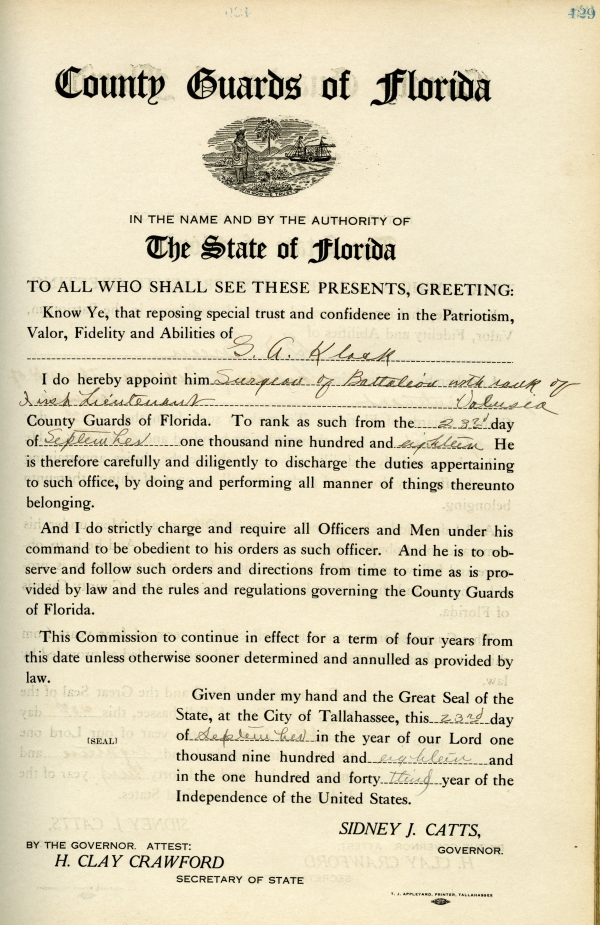 429
County Guards of Florida
IN THE NAME AND BY THE AUTHORITY OF
The State of Florida
TO ALL WHO SHALL SEE THESE PRESENTS, GREETING:
Know Ye, that reposing special trust and confidence in the Patriotism,
Valor, Fidelity and Abilities of
G. A. Klock
I do hereby appoint him Surgeon of Battalion with rank of
First Lieutenant Volusia
County Guards of Florida. To rank as such from the 23rd day
of September one thousand nine hundred and eighteen He
is therefore carefully and diligently to discharge the duties appertaining
to such office, by doing and performing all manner of things thereunto
belonging.
And I do strictly charge and require all Officers and Men under his
command to be obedient to his orders as such officer. And he is to ob-
serve and follow such orders and directions from time to time as is pro-
vided by law and the rules and regulations governing the County Guards
of Florida.
This Commission to continue in effect for a term of four years from
this date unless otherwise sooner determined and annulled as provided by
law.
Given under my hand and the Great Seal of the
State, at the City of Tallahassee, this 23rd day
[SEAL] of September in the year of our Lord one
thousand nine hundred and eighteen and
in the one hundred and forty third year of the
Independence of the United States.
SIDNEY J. CATTS,
GOVERNOR.
BY THE GOVERNOR. ATTEST:
H. CLAY CRAWFORD
SECRETARY OF STATE
T. J. APPLEYARD, PRINTER, TALLAHASSEE